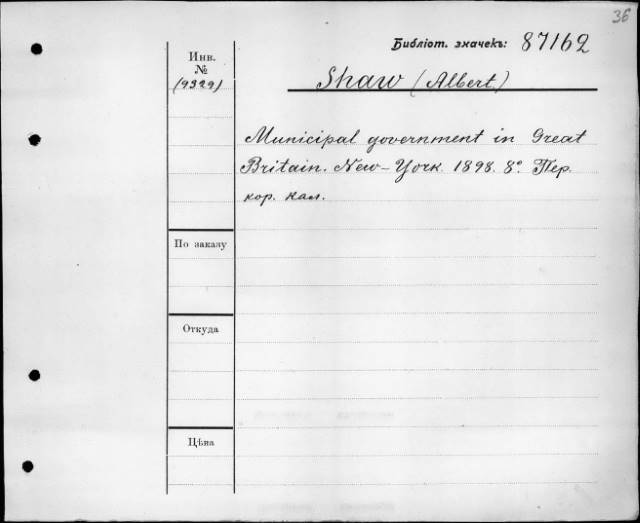 36
Библіот. значекъ: 87162
Инв.
№
(9329)
Shaw (Albert.)
Municipal government in Great
Britain. New-York. 1898. 8º. Пер.
кор. кал.
По заказу
Откуда
Цѣна